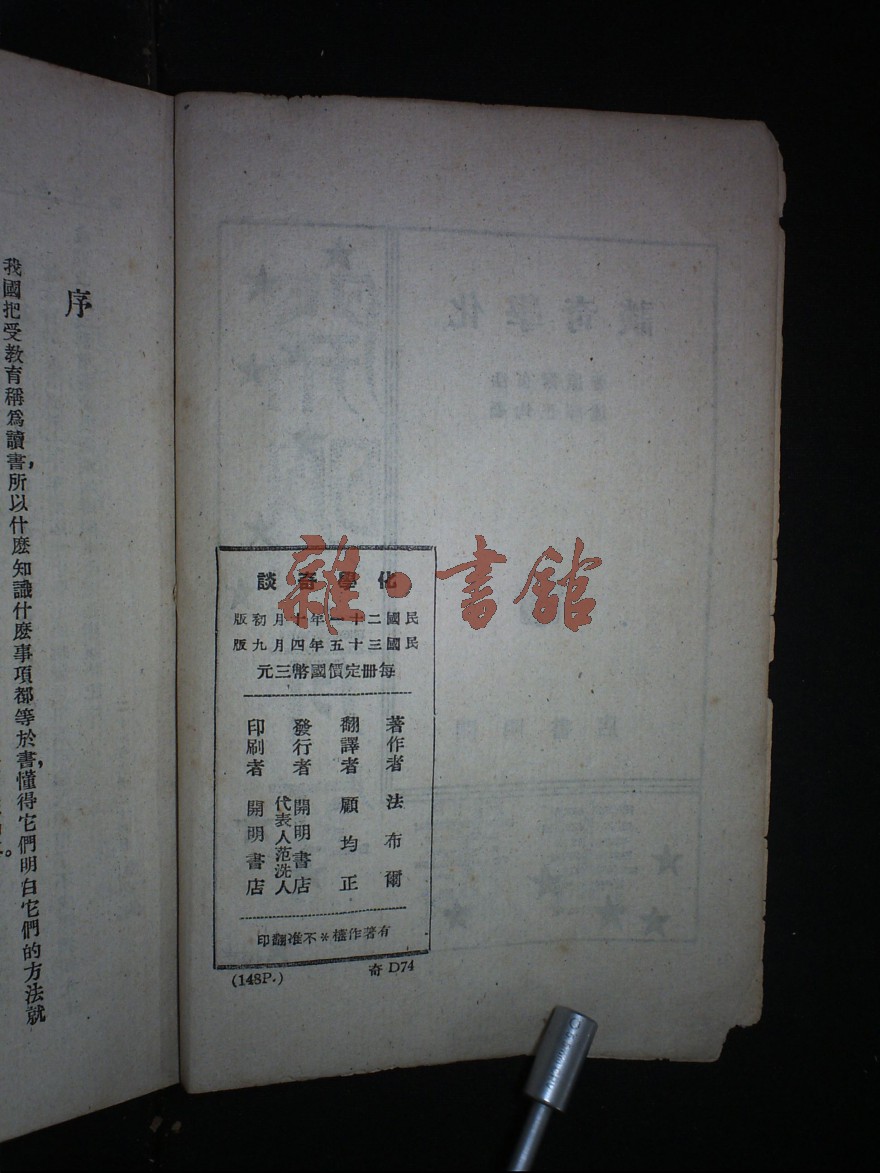 化學奇談
民國二十一年十月初版
民國三十五年四月九版
每冊定價國幣三元
著作者 法布爾
翻譯者 顧均正
發行者 開明書店
代表人范洗人
印刷者 開明書店
有著作權*不准翻印
(148P.) 奇 D74
序
我國把受教育稱爲讀書，所以什麼知識什麼事項都等於書，懂得它們明白它們的方法就
雜·書館
化學奇談